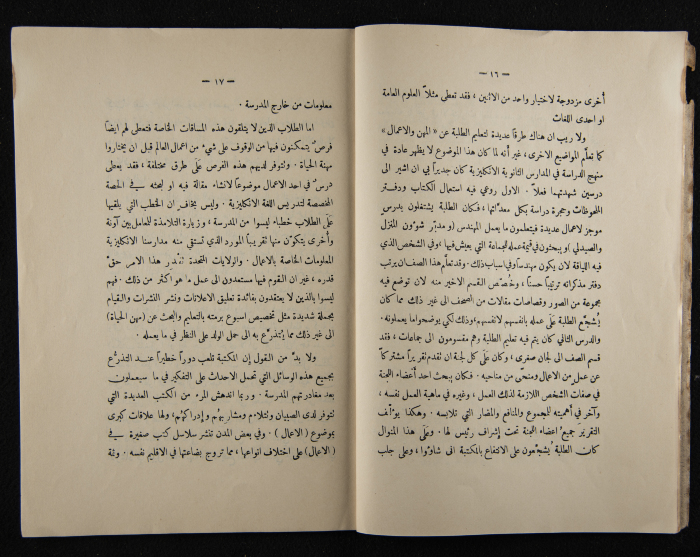 — ١٦ —
أخرى مزدوجة لاختيار واحد من الاثنين ، فقد تعطى مثلاً العلوم العامة
او احدى اللغات
ولا ريب ان هناك طرقاً عديدة لتعليم الطلبة عن « المهن والاعمال »
كما تعلَّم المواضيع الاخرى ، غير أنه لما كان هذا الموضوع لا يظهر عادة في
منهج الدراسة في المدارس الثانوية الانكليزية كان جديراً بي ان اشير الى
درسين شهدتهما فعلاً . الاول روعي فيه استعمال الكتاب ودفتر
الملحوظات وحجرة دراسة بكل معداتها ، فكان الطلبة يشتغلون بدرس
موجز لاعمال عديدة فيتعلمون ما يعمل المهندس (و مدبّر شؤون المنزل
والصيدلي ) ويبحثون في قيمة عمله للجماعة التي يعيش فيها ، وفي الشخص الذي
فيه اللياقة لان يكون مهندساً وفي اسباب ذلك . وقد تعلَّم هذا الصف ان يرتب
دفتر مذكراته ترتيباً حسناً ، وخُصّص القسم الاخير منه لان توضع فيه
مجموعة من الصور وقصاصات مقالات من الصحف الى غير ذلك مما كان
يُشجَّع الطلبة على عمله بانفسهم لانفسهم وذلك لكي يوضحوا ما يعملونه .
والدرس الثاني كان يتم فيه تعليم الطلبة وهم مقسومون الى جماعات ، فقد
قسم الصف الى لجان صغرى ، وكان عَلَى كل لجنة ان تقدم تقريراً مشتركاً
عن عمل من الاعمال ومنحى من مناحيه . فكان يبحث احد أعضاء اللجنة
في صفات الشخص اللازمة لذلك العمل ، وغيره في ماهية العمل نفسه ،
وآخر في أهميته للمجموع والمنافع والمضار التي تلابسه . وهكذا يؤلف
التقرير جميع اعضاء اللجنة تحت إشراف رئيس لها . وعَلَى هذا المنوال
كان الطلبة يُشجَّعون على الانتفاع بالمكتبة انى شاؤوا ، وعلى جلب
— ١٧ —
معلومات من خارج المدرسة .
اما الطلاب الذين لا يتلقون هذه المساقات الخاصة فتعطى لهم ايضاً
فرصٌ يتمكنون فيها من الوقوف على شيء من اعمال العالم قبل ان يختاروا
مهنة الحياة . وتتوفر لديهم هذه الفرص عَلَى طرق مختلفة ، فقد يعطى
درسٌ في احد الاعمال موضوعاً لانشاء مقالة فيه او لبحثه في الحصة
المخصصة لتدريس اللغة الانكليزية . وليس بخاف ان الخطب التي يلقيها
عَلَى الطلاب خطباء ليسوا من المدرسة ، وزيارة التلامذة للمعامل بين آونة
وأخرى يتكوّن منها تقريباً المورد الذي تستقي منه مدارسنا الانكليزية
المعلومات الخاصة بالاعمال . والولايات المتحدة تقدر هذا الامر حقّ
قدره ، غير ان القوم فيها مستعدون الى عمل ما هو أكثر من ذلك . فهم
ليسوا بالذين لا يعتقدون بفائدة تعليق الاعلانات ونشر النشرات والقيام
بحملة شديدة مثل تخصيص اسبوع برمته بالتعليم والبحث عن (مهن الحياة)
الى غير ذلك مما يُتذرَّع به الى حمل الولد على النظر في ما يعمله .
ولا بدّ من القول إن المكتبة تلعب دوراً خطيراً عند التذرُّع
بجميع هذه الوسائل التي تحمل الاحداث على التفكير في ما سيعملون
بعد مغادرتهم المدرسة . وربما اندهش المرء من الكتب العديدة التي
تتوفر لدى الصبيان وتتلاءم ومشاربهم وإدراكهم ، ولها علاقات كبرى
بموضوع ( الاعمال ) . وفي بعض المدن تنشر سلاسل كتب صغيرة في
(الاعمال) على اختلاف انواعها ، مما تروج بضاعتها في الاقليم نفسه . وثمة